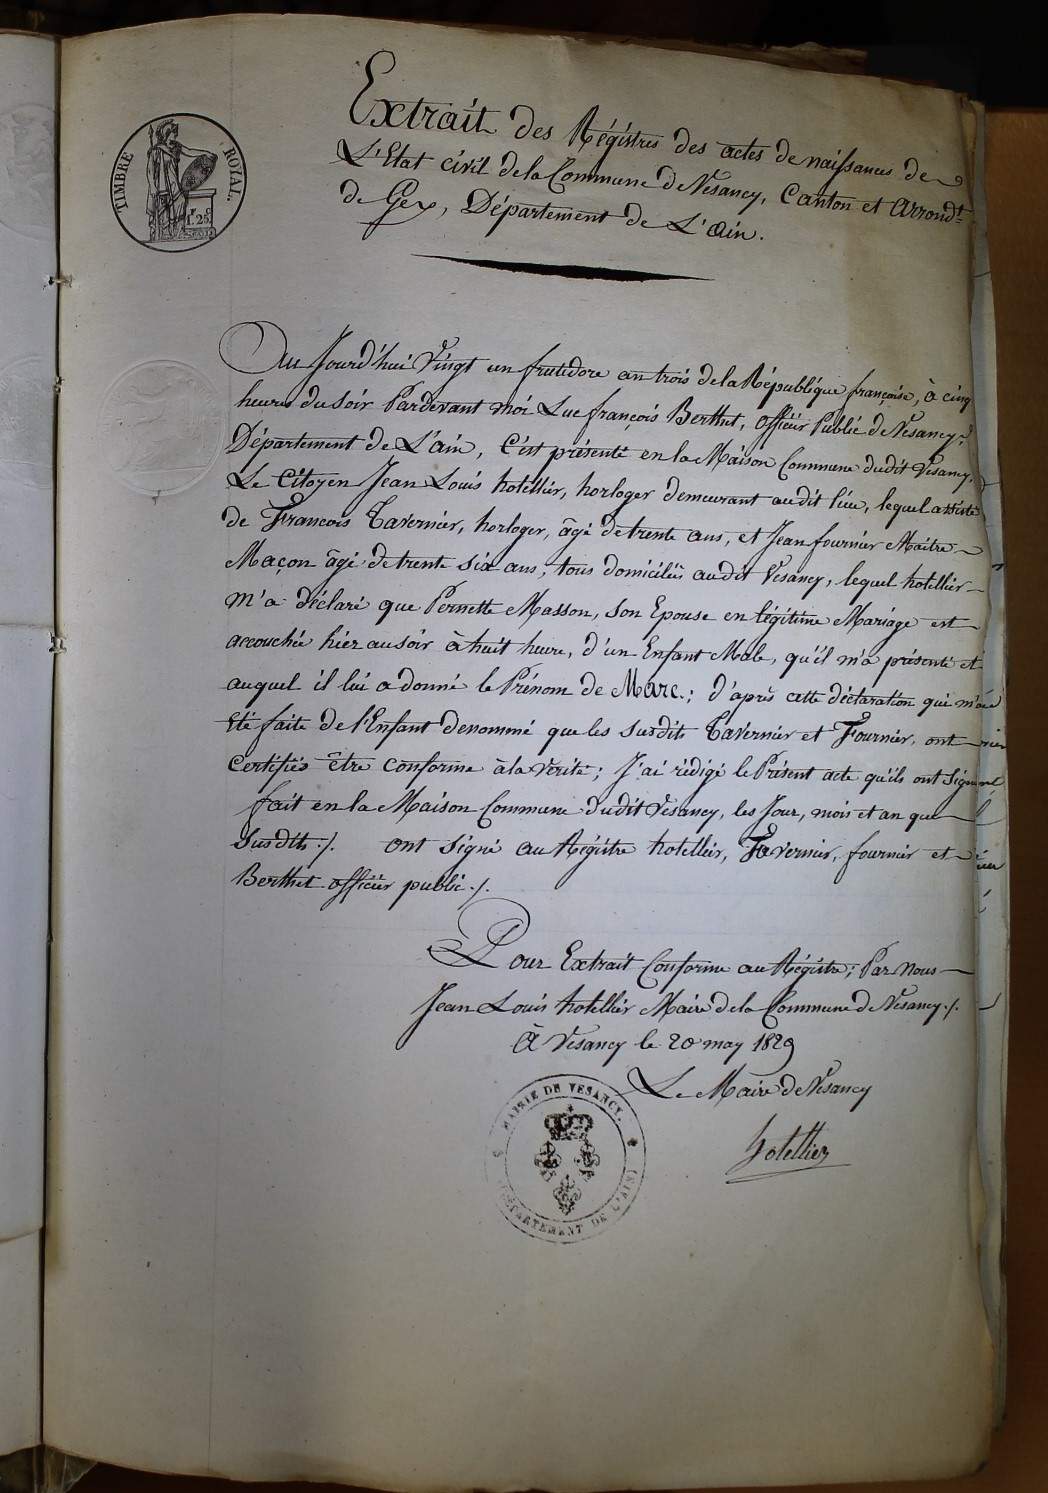 TIMBRE ROYAL.
1f. 25c.
Extrait des Régistres des actes de naissances de
L'Etat civil de la Commune de Vesancy, Canton et Arrond.t
de Gex, Département de L'ain.
Au Jourd'hui Vingt un frutidore an trois de la République françoise, à cinq
heures du soir Pardevant moi Luc françois Berthet, officier Public de Vesancy,
Département de L'ain, C'est présenté en la Maison Commune dudit Vesancy,
Le Citoyen Jean Louis hotellier, horloger demeurant audit lieu, lequel assisté
de Francois Tavernier, horloger, âgé de trente ans, et Jean fournier Maitre
Maçon âgé de trente six ans, tous domiciliés audit Vesancy, lequel hotellier
m'a déclaré que Pernette Masson, son Epouse en légitime Mariage est
accouchée hier au soir à huit heure, d'un Enfant Male, qu'il m'a présenté et
auquel il lui a donné le Prénom de Marc.; d'après cette déclaration qui m'a
été faite de l'Enfant denommé que les susdits Tavernier et Fournier, ont
certifiés être conforme à la verité; J'ai rédigé le Présent acte qu'ils ont signé
fait en la Maison Commune dudit Vesancy, les Jour, mois et an que
Susdits ./. ont signé au Régistre hotellier, Tavernier, fournier et
Berthet officier public ./.
Pour Extrait Conforme au Régistre; Par Nous
Jean Louis hotellier Maire de la Commune de Vesancy ./.
à Vesancy le 20 may 1829
Le Maire de Vesancy
hotellier
MAIRIE DE VESANCY.
DÉPARTEMENT DE L'AIN